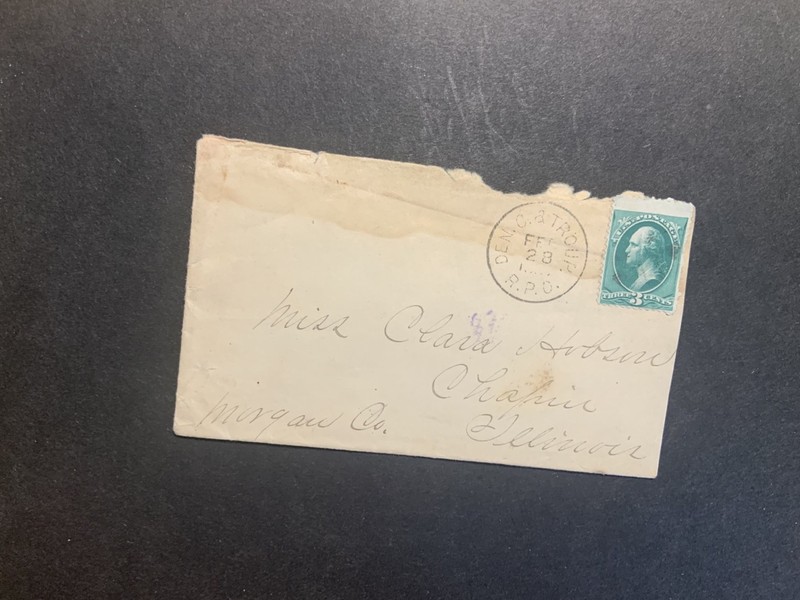 DEN. C. & TROUP
FEB
28
R.P.O.
U.S. POSTAGE
THREE 3 CENTS
Miss Clara Hobson
Chapin
Morgan Co. Illinois